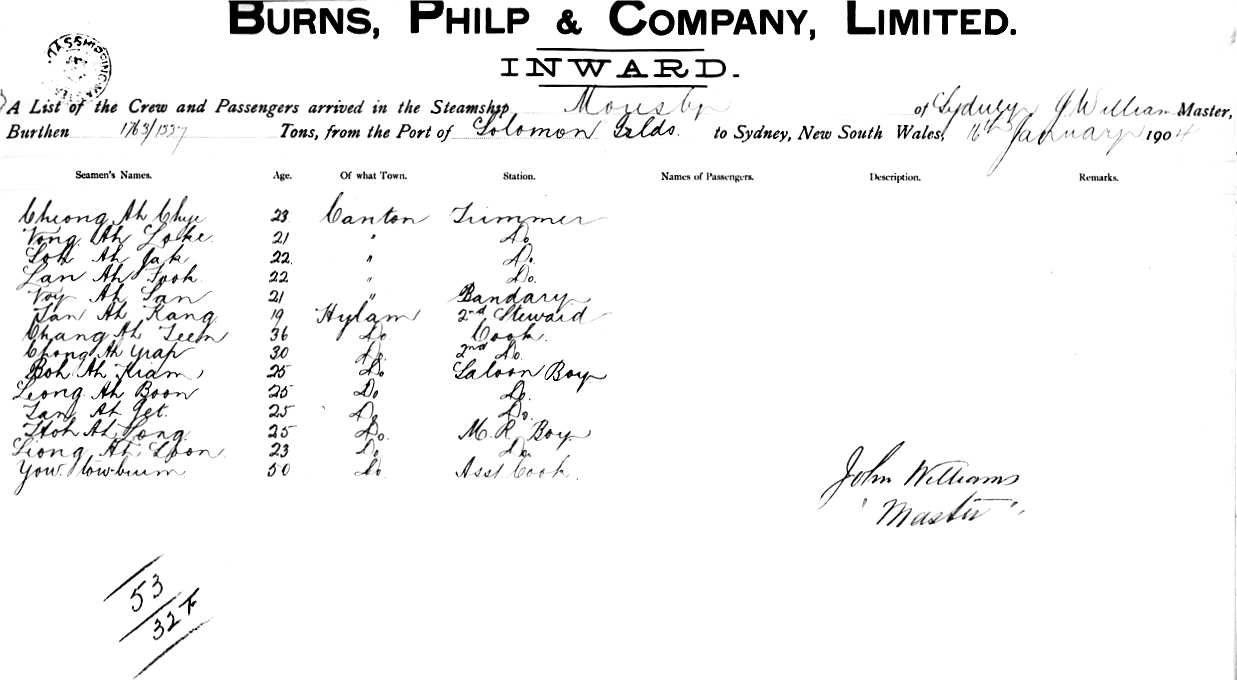 BURNS, PHILP & COMPANY, LIMITED.
INWARD.
A List of the Crew and Passengers arrived in the Steamship Moresby of Sydney J William Master,
Burthen 1763/1337 Tons, from the Port of Solomon Islds. to Sydney, New South Wales, 16th January 1904
Seamen's Names. Age. Of what Town. Station. Names of Passengers. Description. Remarks.
Cheong Ah Chye 23 Canton Trimmer
Vong Ah Loke 21 " Do.
Soh Ah Jak 22 " Do.
Lan Ah Fook 22 " Do.
Voy Ah San 21 " Bandary
Tan Ah Kang 19 Hylam 2nd Steward
Chang Ah Teen 36 Do Cook.
Chong Ah Yiap 30 Do. 2nd Do.
Boh Ah Kiam 25 Do Saloon Boy
Leong Ah Boon 25 Do Do.
Tan Ah Jet. 25 Do. Do.
Ah Long 25 Do. M. R. Boy
Liong Ah Loon 23 Do Do.
You 50 Do. Asst Cook.
John Williams
"Master".
53
32